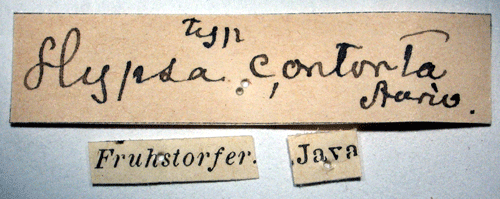 typ
Hypsa contorta
Auriv.
Fruhstorfer.
Java